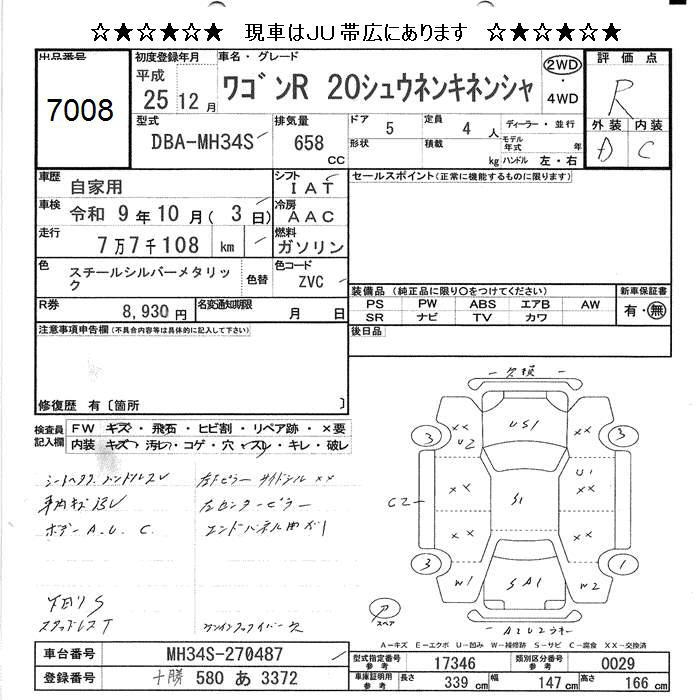 ☆★☆★☆★ 現車はJU帯広にあります ☆★☆★☆★
出品番号
7008
初度登録年月
平成
25 12月
車名・グレード
ワゴンR 20シュウネンキネンシャ
2WD
・
4WD
評価点
R
外装 内装
D C
型式
DBA-MH34S
排気量
658
CC
ドア
5
形状
定員
4 人
積載
kg
ディーラー・並行
モデル年式
年
ハンドル 左・右
車歴
自家用
シフト
IAT
車検
令和 9年10月(3日)
冷房
AAC
走行
7万7千108 km
燃料
ガソリン
色
スチールシルバーメタリック
色替
色コード
ZVC
R券
8,930円
名変通知期限
月 日
セールスポイント(正常に機能するものに限ります)
装備品(純正品に限り○をつけてください)
PS PW ABS エアB AW
SR ナビ TV カワ
新車保証書
有・無
後日品
注意事項申告欄(不具合内容等は具体的に記入して下さい)
修復歴 有〔箇所 〕
検査員記入欄
FW キズ・飛石・ヒビ割・リペア跡・×要
内装 キズ・汚レ・コゲ・穴・スレ・キレ・破レ
ボデー A.U. C.
左センターピラー
下回りS
スタッドレスT
欠損
US1
3
U2
××
××
3
U1
C2
××
S1
××
××
3
W1
SA1
W2
1
スペア
A-キズ E-エクボ U-凹み W-補修跡 S-サビ C-腐食 XX-交換済
車台番号
MH34S-270487
登録番号
十勝 580 あ 3372
型式指定番号
参考
17346
類別区分番号
参考
0029
車庫証明用
参考
長さ
339 cm
幅
147 cm
高さ
166 cm